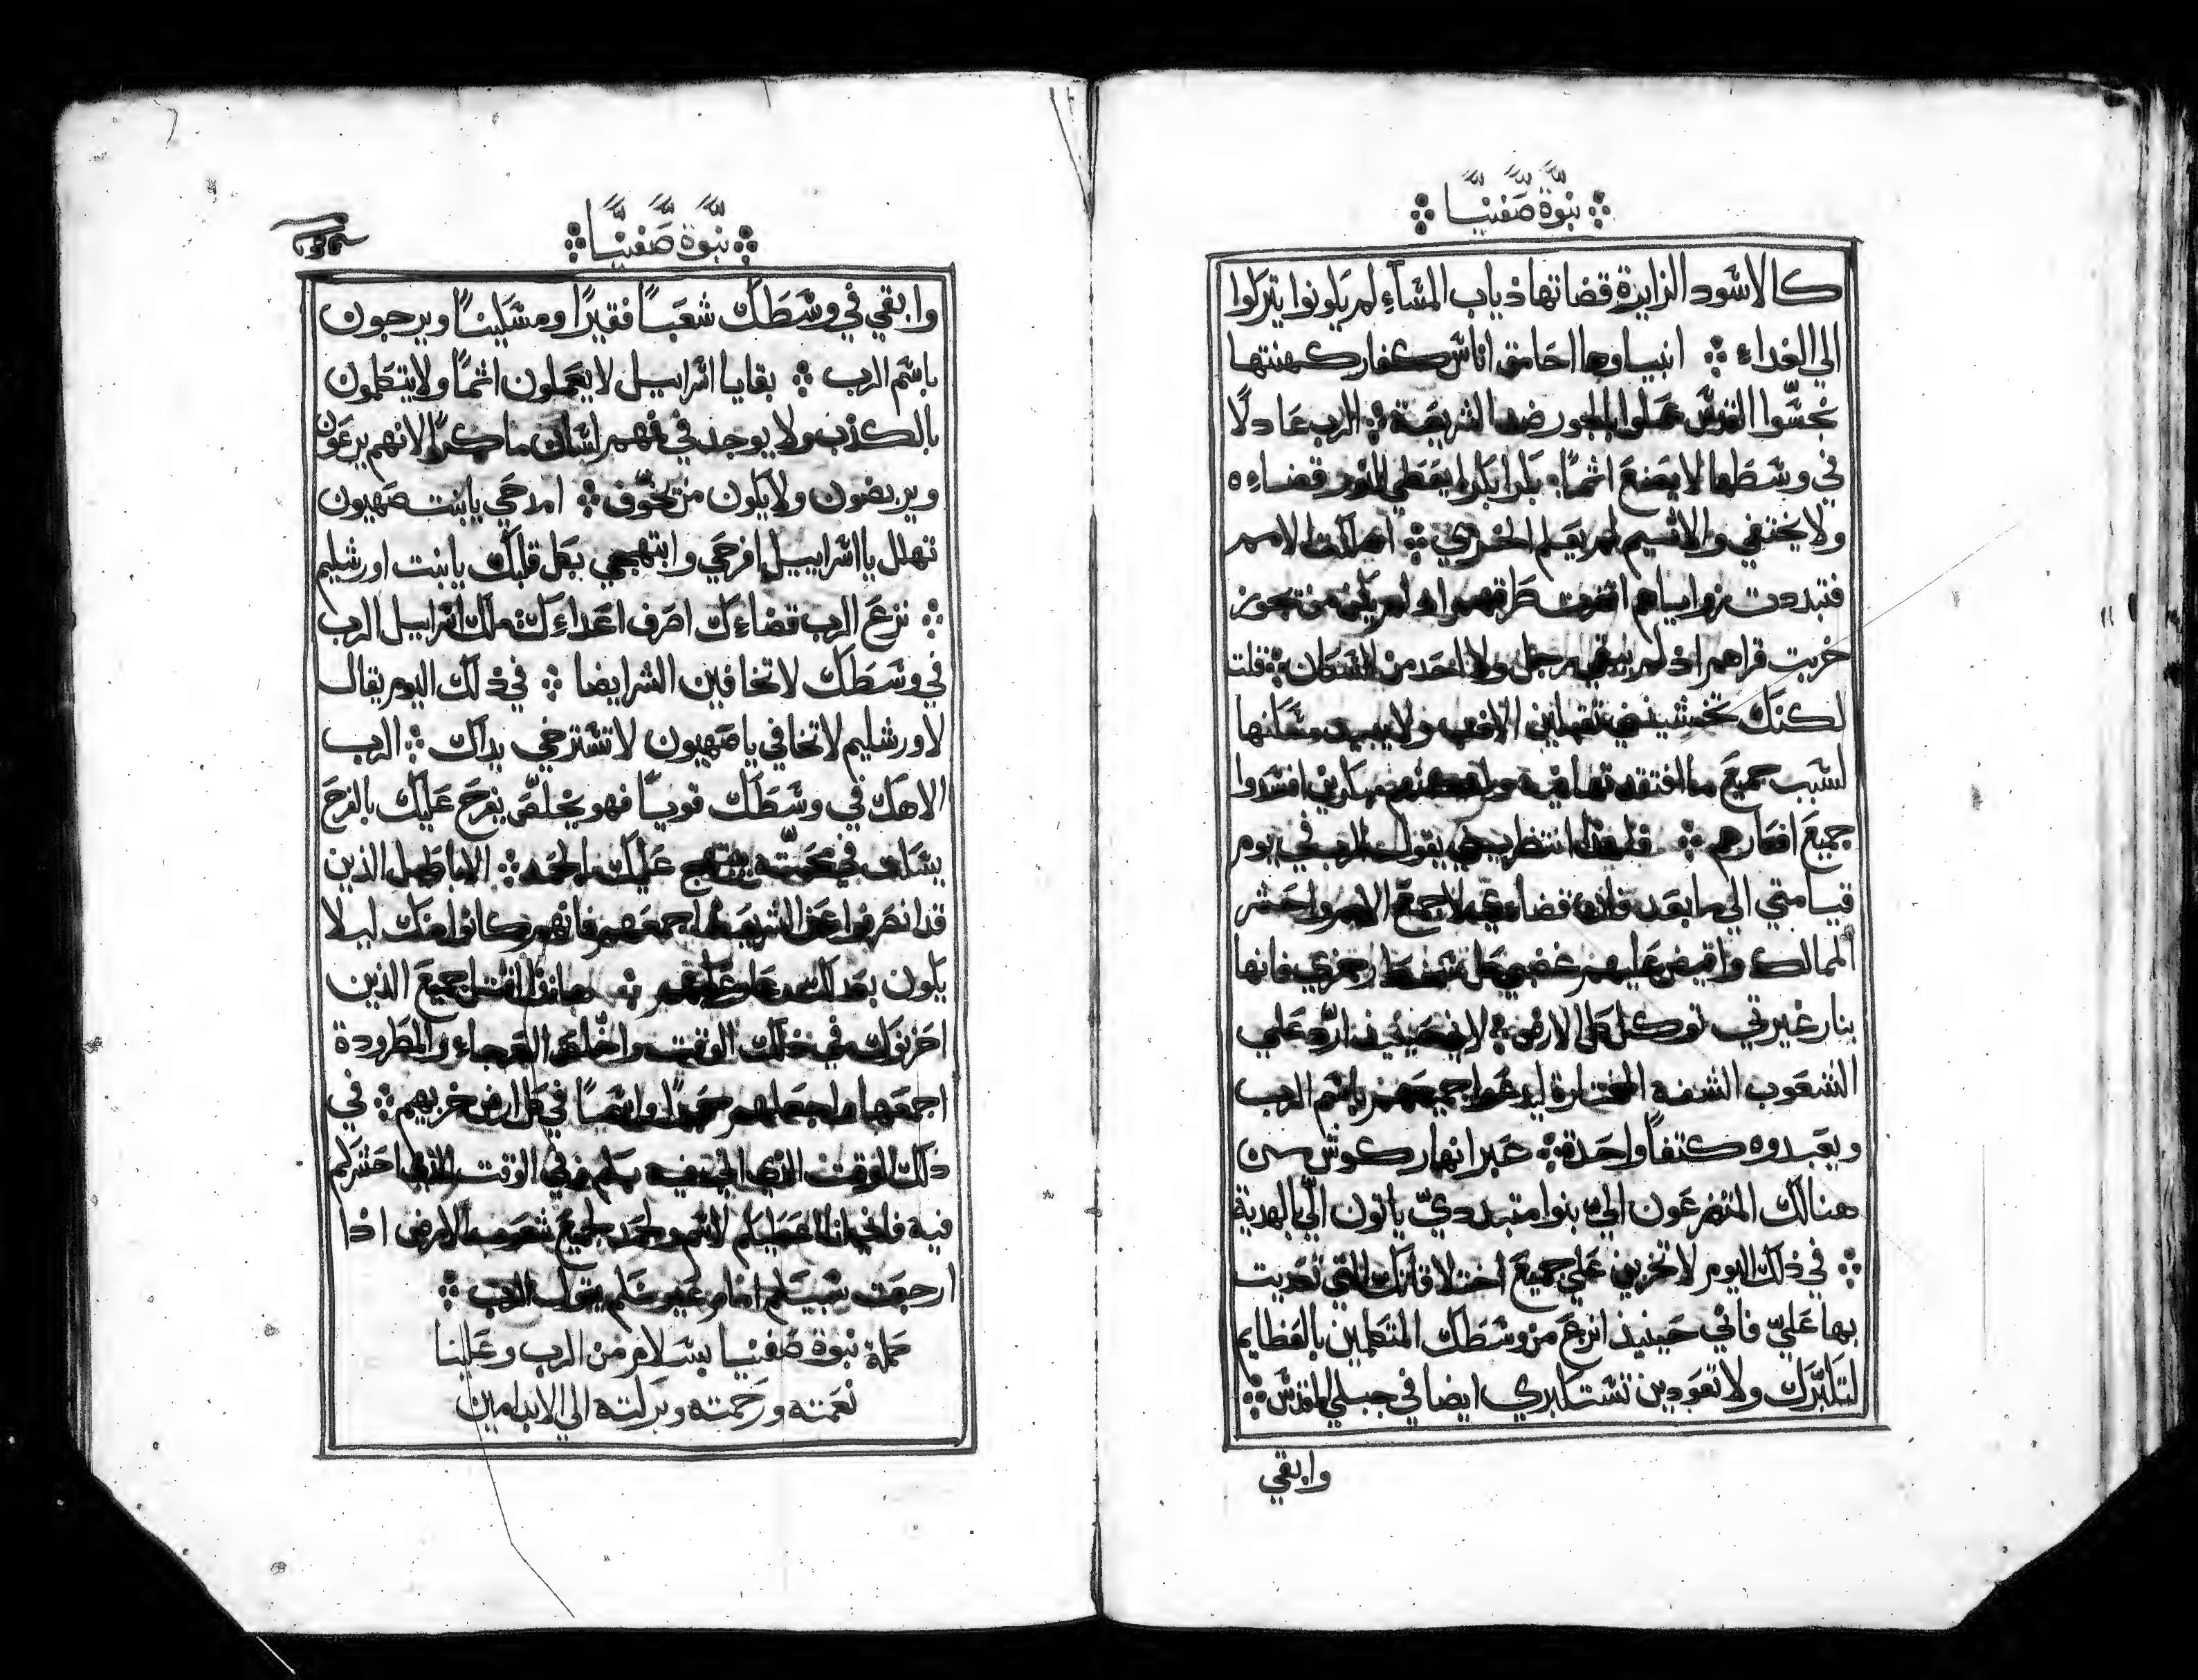 نبوة صفنيا
كالاسود الزايرة قضاتها ذياب المساء لم يكونوا يتركوا
الي الغداء انبياوها احامق اناس كفار كهنتها
نجسوا القدس عملوا بالجور ضد الشريعة الرب عادلا
في وسطها لا يصنع اثما بكرا بكرا يعطي للنور قضاءه
ولا يختفي والاثيم لم يعلم الخزي اهلكت الامم
فتبددت زواياهم اقفرت طرقهم اذ لم يكن من تجوز
خربت قراهم اذ لم يبقي رجل ولا احد من السكان قلت
لكنك تخشيني تقبلين الادب ولا يبيد مسكنها
لسبب جميع ما افتقدتها فيه مبكرين افسدوا
جميع افكارهم فلهذا انتظريني يقول الرب في يوم
قيامتي الي ما بعد فان قضاءي لاجمع الامم واحشر
الممالك وافيض عليهم غضبي كل سخط رجزي فانها
بنار غيرتي توكل كل الارض لاني حينيذ ارد علي
الشعوب الشفه المختارة ليدعوا جميعهم باسم الرب
ويعبدوه كتفا واحدة عبر انهار كوش من
هنالك المتضرعون الي بنوا متبددي ياتون الي بالهدية
في ذلك اليوم لا تخزين علي جميع اختلاقاتك التي تعديت
بها علي فاني حينيذ انزع من وسطك المتكلمين بالعظايم
لتكبرك ولا تعودين تستكبري ايضا في جبلي المقدس
وابقي
نبوة صفنيا
وابقي في وسطك شعبا فقيرا ومسكينا ويرجون
باسم الرب بقايا اسراييل لا يعملون اثما ولا يتكلمون
بالكذب ولا يوجد في فمهم لسان ماكرا لانهم يرعون
ويربضون ولا يكون من يخوف امدحي يا بنت صهيون
تهلل يا اسراييل افرحي وابتهجي بكل قلبك يا بنت اورشليم
نزع الرب قضاءك اصرف اعداءك ملك اسراييل الرب
في وسطك لا تخافين الشر ايضا في ذلك اليوم يقال
لاورشليم لا تخافي يا صهيون لا تسترخي يداك الرب
الاهك في وسطك قويا فهو يخلص يفرح عليك بالفرح
يسكت في محبته يبتهج عليك بالحمد الاباطيل الذين
قد انصرفوا عن الشريعة اجمعهم فانهم كانوا منك ليلا
يكون بعد لك عار عليهم هانذا اقتل جميع الذين
احزنوك في ذلك الوقت واخلص العرجاء والمطرودة
اجمعها واجعلهم حمدا واسما في كل ارض خزيهم في
ذلك الوقت الذي اجي فيه بكم وفي الوقت الذي احشركم
فيه فاني اعطيكم لاسم ولحمد لجميع شعوب الارض اذا
ارجعت سبيكم امام عيونكم يقول الرب
كملة نبوة صفنيا بسلام من الرب وعلينا
نعمته ورحمته وبركته الي الابد امين